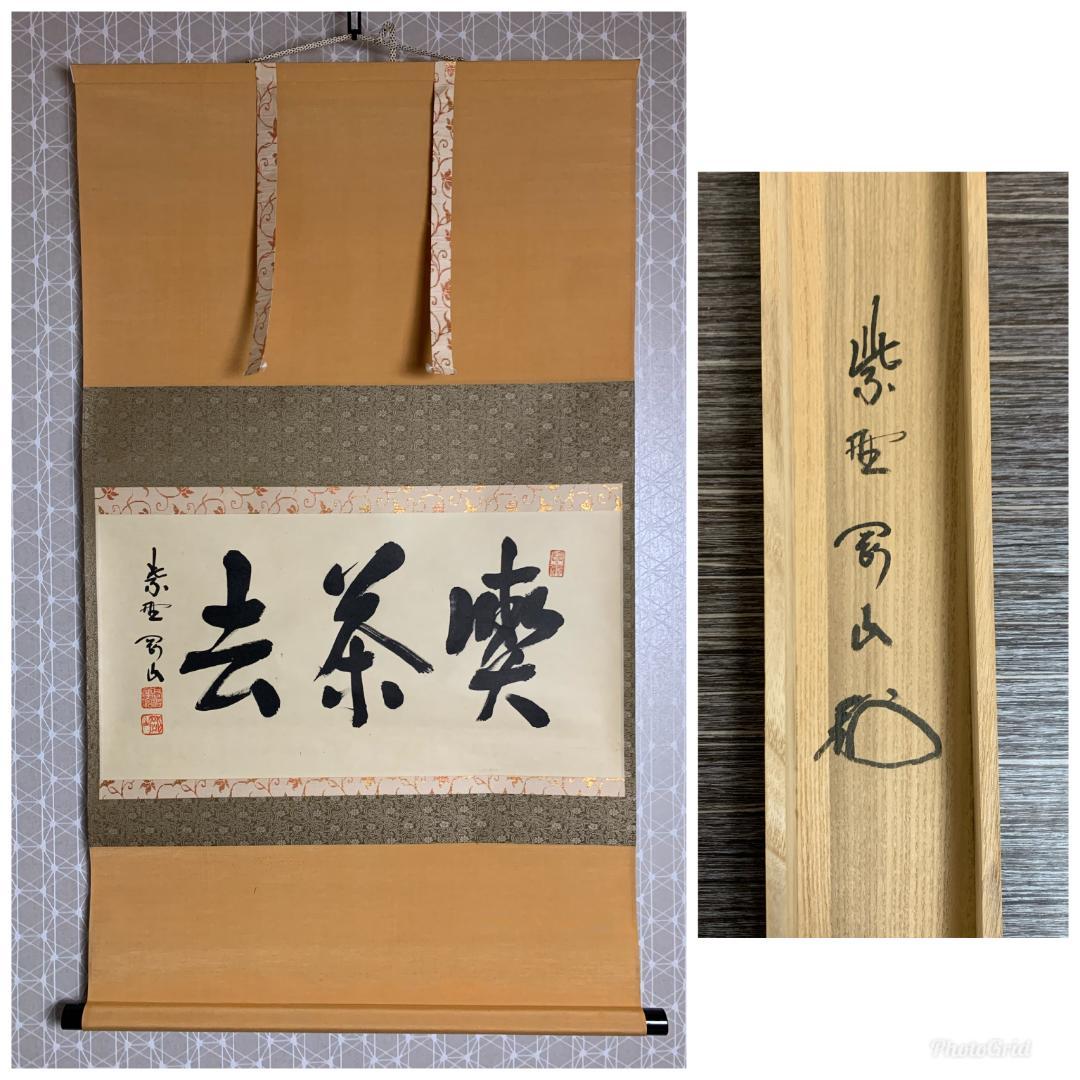 喫茶去
紫野剛山
紫野剛山
PhotoGrid